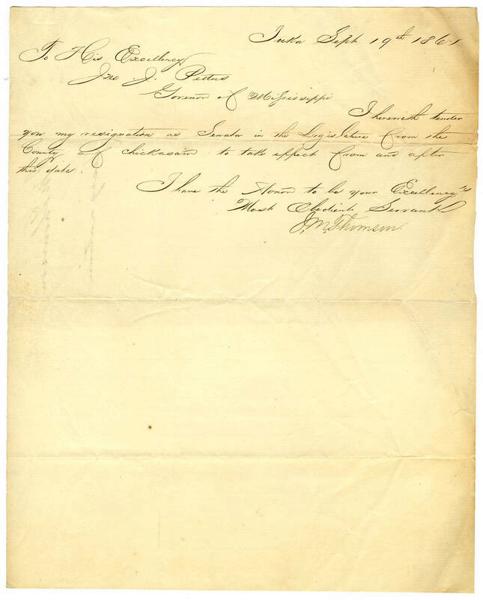 Iuka Sept 19th 1861
To His Excellency
Jno J. Pettus
Govenor of Mississippi
I herewith tender
you my resignation as Senator in the Legislature from the
County of Chickasaw to take effect from and after
this date.
I have the Honor to be your Excellency's
Most Obedient Servant
J. M. Thomson